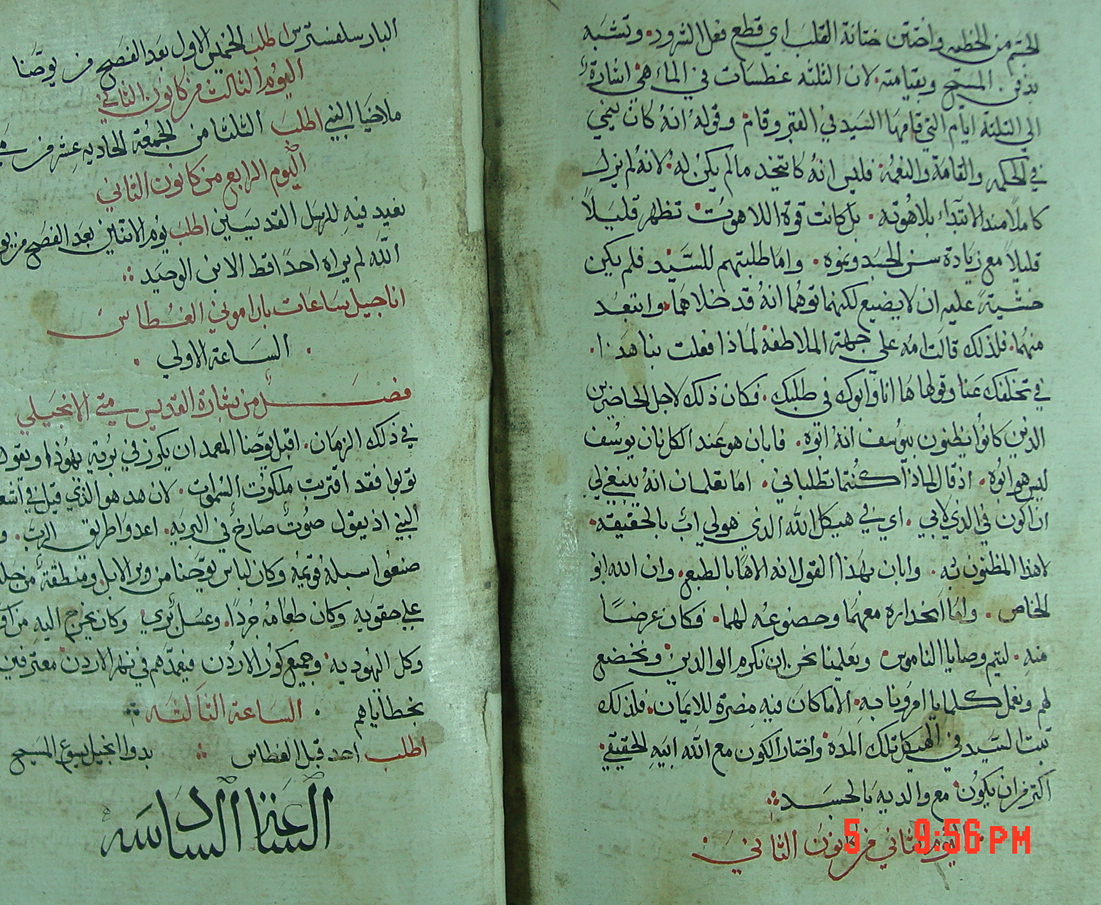 الجسم من الخطيه واختتن ختانة القلب اي قطع فعل الشرور. وتشبه
بدفن المسيح وبقيامته. لان الثلثة غطسات في الماء هي اشارة
الي الثلثة ايام التي قامها السيد في القبر وقام. وقوله انه كان ينمي
في الحكمه والقامة والنعمة فليس انه كان يتخد مالم يكن له. لانه لم يزل
كاملاً مند الابتداء بلاهوته. بل كانت قوة اللاهوت تظهر قليلاً
قليلاً مع زيادة سن الجسد ونموه. واما طلبتهم للسيد فلم يكن
خشية عليه ان لا يضيع لكنهما توهما انه قد خلاهما. وابتعد
منهما. فلذلك قالت امه علي جهة الملاطفة لماذا فعلت بنا هذا.
في تخلفك عنا وقولها ها انا وابوك في طلبك. فكان ذلك لاجل الحاضرين
الذين كانوا يظنون بيوسف انه ابوه. فابان هو عند الكل ان يوسف
ليس هو ابوه. اذ قال لماذا كنتما تطلباني. اما تعلمان انه ينبغي لي
ان اكون في الذي لابي. اي في هيكل الله الذي هو لي اب بالحقيقة.
لا هذا المظنون به. وابان بهذا القول انه الاها بالطبع. وان الله ابوه
الخاص. واما انحداره معهما وخضوعه لهما. فكان عرضا
منه. ليتم وصايا الناموس ويعلمنا نحن ان نكرم الوالدين ونخضع
لهم ونعمل كلما يامرونا به. الا ماكان فيه مضرة للايمان. فلذلك
تبت السيد في الهيكل تلك المدة واختار الكون مع الله ابيه الحقيقي
اكتر من ان يكون مع والديه بالجسد
اليوم الثاني من كانون التاني
5 9:56 PM
البار سلفسترس اطلب الخميس الاول بعد الفصح من يوحنا
اليوم التالت من كانون التاني
ملاخيا النبي اطلب الثلثا من الجمعة الحاديه عشر من
اليوم الرابع من كانون التاني
نعيد فيه للرسل القديسين اطلب يوم الاتنين بعد الفصح من
الله لم يراه احدا قط الابن الوحيد
اناجيل ساعات باراموني الغطاس
الساعة الاولي
فصل من بشارة القديس متي الانجيلي
في ذلك الزمان. اقبل يوحنا المعمدان يكرز في برية يهودا ويقول
توبوا فقد اقتربت ملكوت السموات. لان هذ هو الذي قيل في اشعيا
النبي اذ يقول صوت صارخ في البريه. اعدوا طريق الرب.
صنعوا سبله قويمه وكان لباس يوحنا من وبر الابل ومنطقة من جلد
علي حقويه وكان طعامه جردا. وعسل بري. وكان يخرج اليه من
وكل اليهوديه. وجميع كور الاردن فيعمدهم في نهر الاردن معترفين
بخطاياهم. الساعة التالته
اطلب احد قبل الغطاس بدو انجيل يسوع المسيح
الساعة السادسه